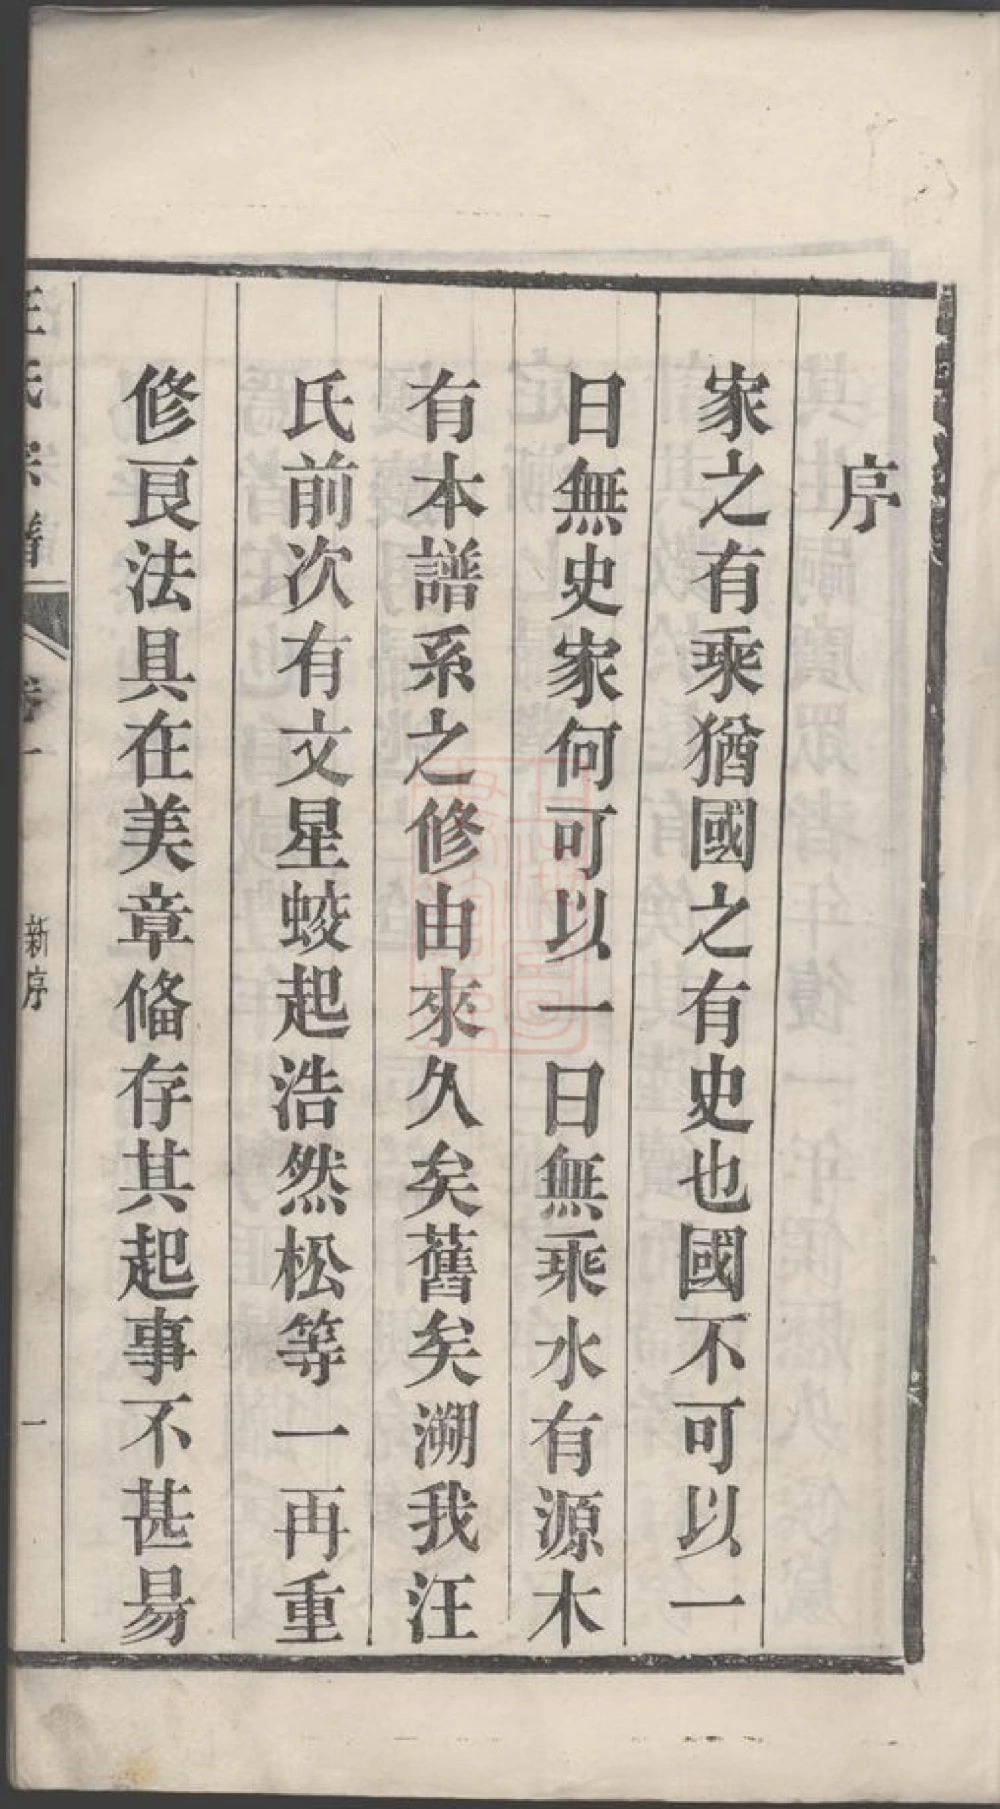 序
家之有乘猶國之有史也國不可以一
日無史家何可以一日無乘水有源木
有本譜系之修由來久矣舊矣溯我汪
氏前次有文星蛟起浩然松等一再重
修良法具在美章俻存其起事不甚易
汪氏宗譜 卷一 新序 一